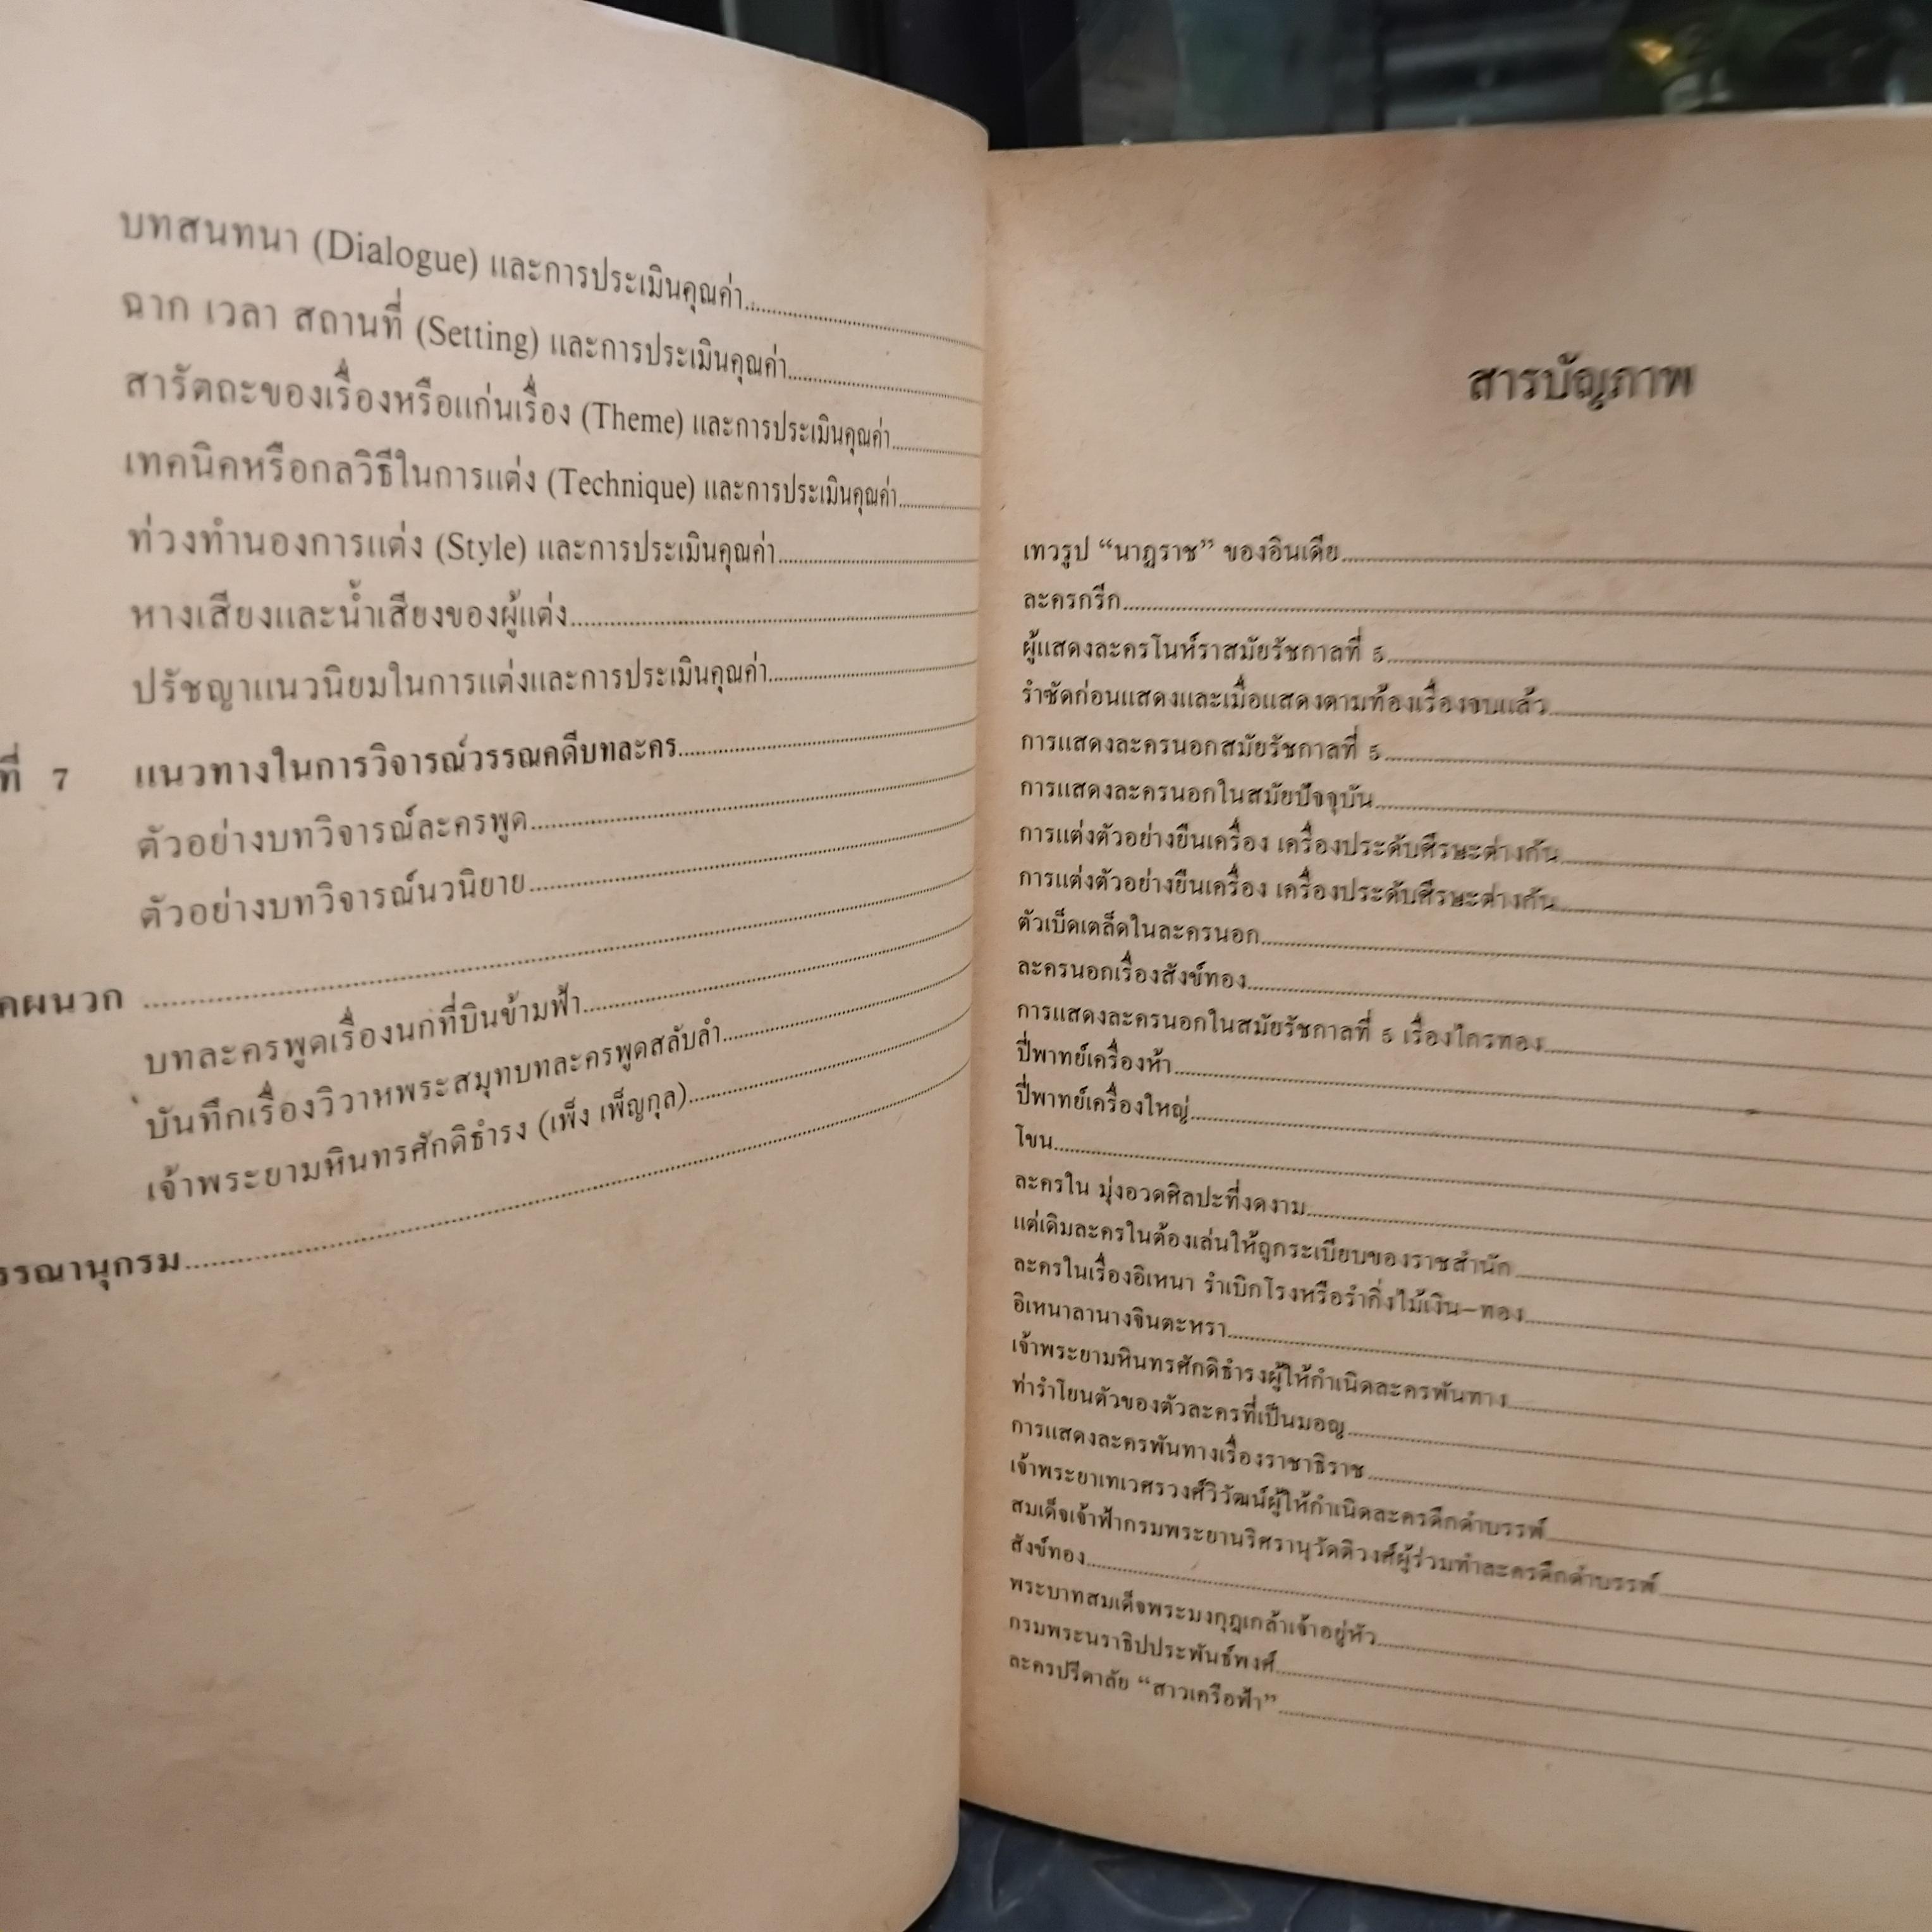 บทสนทนา (Dialogue) และการประเมินคุณค่า
ฉาก เวลา สถานที่ (Setting) และการประเมินคุณค่า
สารัตถะของเรื่องหรือแก่นเรื่อง (Theme) และการประเมินคุณค่า
เทคนิคหรือกลวิธีในการแต่ง (Technique) และการประเมินคุณค่า
ท่วงทำนองการแต่ง (Style) และการประเมินคุณค่า
หางเสียงและน้ำเสียงของผู้แต่ง
ปรัชญาแนวนิยมในการแต่งและการประเมินคุณค่า
ที่ 7 แนวทางในการวิจารณ์วรรณคดีบทละคร
ตัวอย่างบทวิจารณ์ละครพูด
ตัวอย่างบทวิจารณ์นวนิยาย
คผนวก
บทละครพูดเรื่องนกที่บินข้ามฟ้า
บันทึกเรื่องวิวาหพระสมุทบทละครพูดสลับลำ
เจ้าพระยามหินทรศักดิธำรง (เพ็ง เพ็ญกุล)
รรณานุกรม
สารบัญภาพ
เทวรูป “นาฏราช” ของอินเดีย
ละครกรีก
ผู้แสดงละครโนห์ราสมัยรัชกาลที่ 5
รำซัดก่อนแสดงและเมื่อแสดงตามท้องเรื่องจบแล้ว
การแสดงละครนอกสมัยรัชกาลที่ 5
การแสดงละครนอกในสมัยปัจจุบัน
การแต่งตัวอย่างยืนเครื่อง เครื่องประดับศีรษะต่างกัน
การแต่งตัวอย่างยืนเครื่อง เครื่องประดับศีรษะต่างกัน
ตัวเบ็ดเตล็ดในละครนอก
ละครนอกเรื่องสังข์ทอง
การแสดงละครนอกในสมัยรัชกาลที่ 5 เรื่องไกรทอง
ปี่พาทย์เครื่องห้า
ปี่พาทย์เครื่องใหญ่
โขน
ละครใน มุ่งอวดศิลปะที่งดงาม
แต่เดิมละครในต้องเล่นให้ถูกระเบียบของราชสำนัก
ละครในเรื่องอิเหนา รำเบิกโรงหรือรำกิ่งไม้เงิน–ทอง
อิเหนาลานางจินตะหรา
เจ้าพระยามหินทรศักดิธำรงผู้ให้กำเนิดละครพันทาง
ท่ารำโยนตัวของตัวละครที่เป็นมอญ
การแสดงละครพันทางเรื่องราชาธิราช
เจ้าพระยาเทเวศรวงศ์วิวัฒน์ผู้ให้กำเนิดละครดึกดำบรรพ์
สมเด็จเจ้าฟ้ากรมพระยานริศรานุวัดติวงศ์ผู้ร่วมทำละครดึกดำบรรพ์
สังข์ทอง
พระบาทสมเด็จพระมงกุฎเกล้าเจ้าอยู่หัว
กรมพระนราธิปประพันธ์พงศ์
ละครปรีดาลัย “สาวเครือฟ้า”